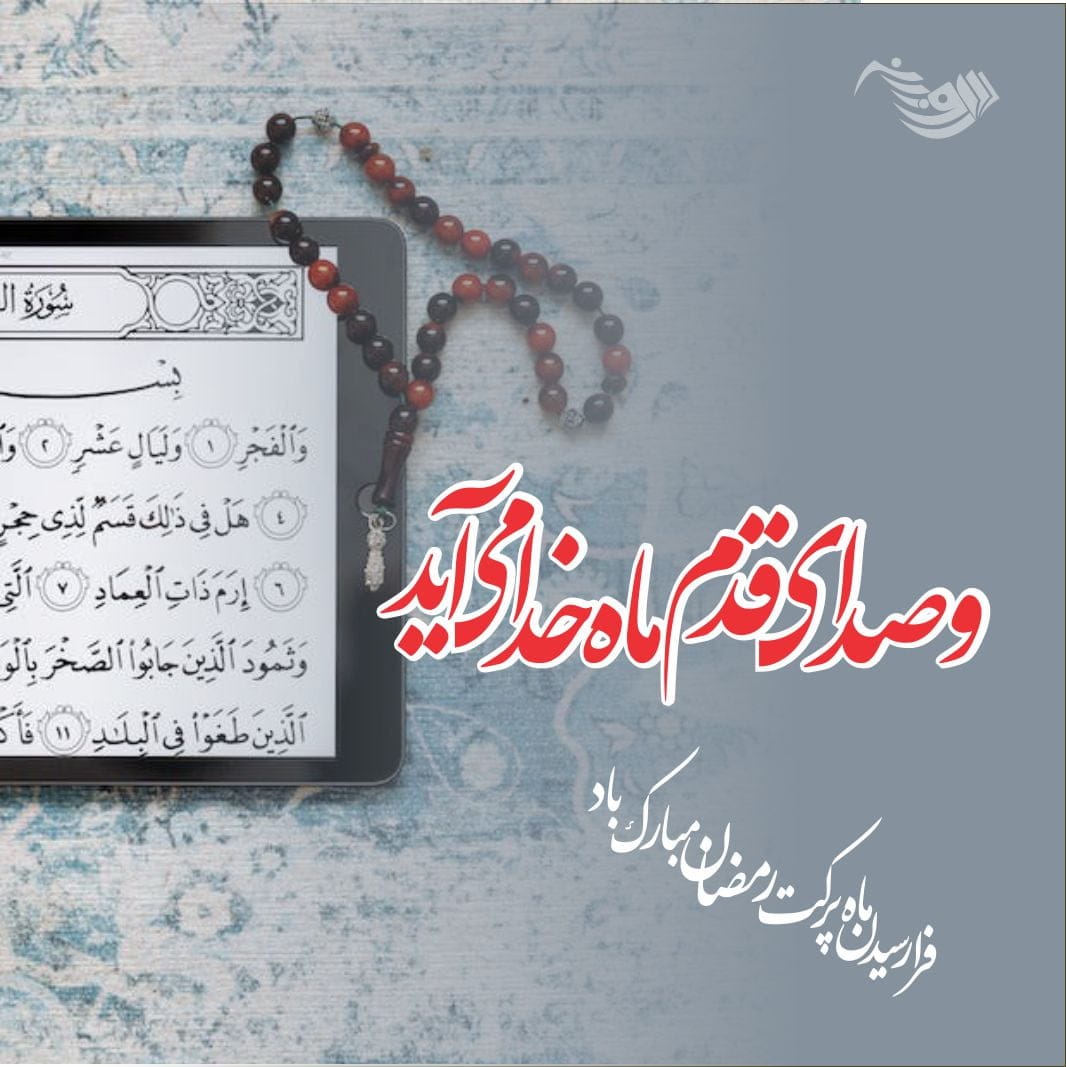 سُورَةُ ال
بِسْـ
وَٱلْفَجْرِ ١ وَلَيَالٍ عَشْرٍ ٢
٤ هَلْ فِى ذَٰلِكَ قَسَمٌ لِّذِى حِجْرٍ
٦ إِرَمَ ذَاتِ ٱلْعِمَادِ ٧ ٱلَّتِى
وَثَمُودَ ٱلَّذِينَ جَابُوا۟ ٱلصَّخْرَ بِٱلْوَ
ٱلَّذِينَ طَغَوْا۟ فِى ٱلْبِلَـٰدِ ١١ فَأَكْ
و صدای قدم ماه خدا می آید
فرارسیدن ماه پربرکت رمضان مبارک باد